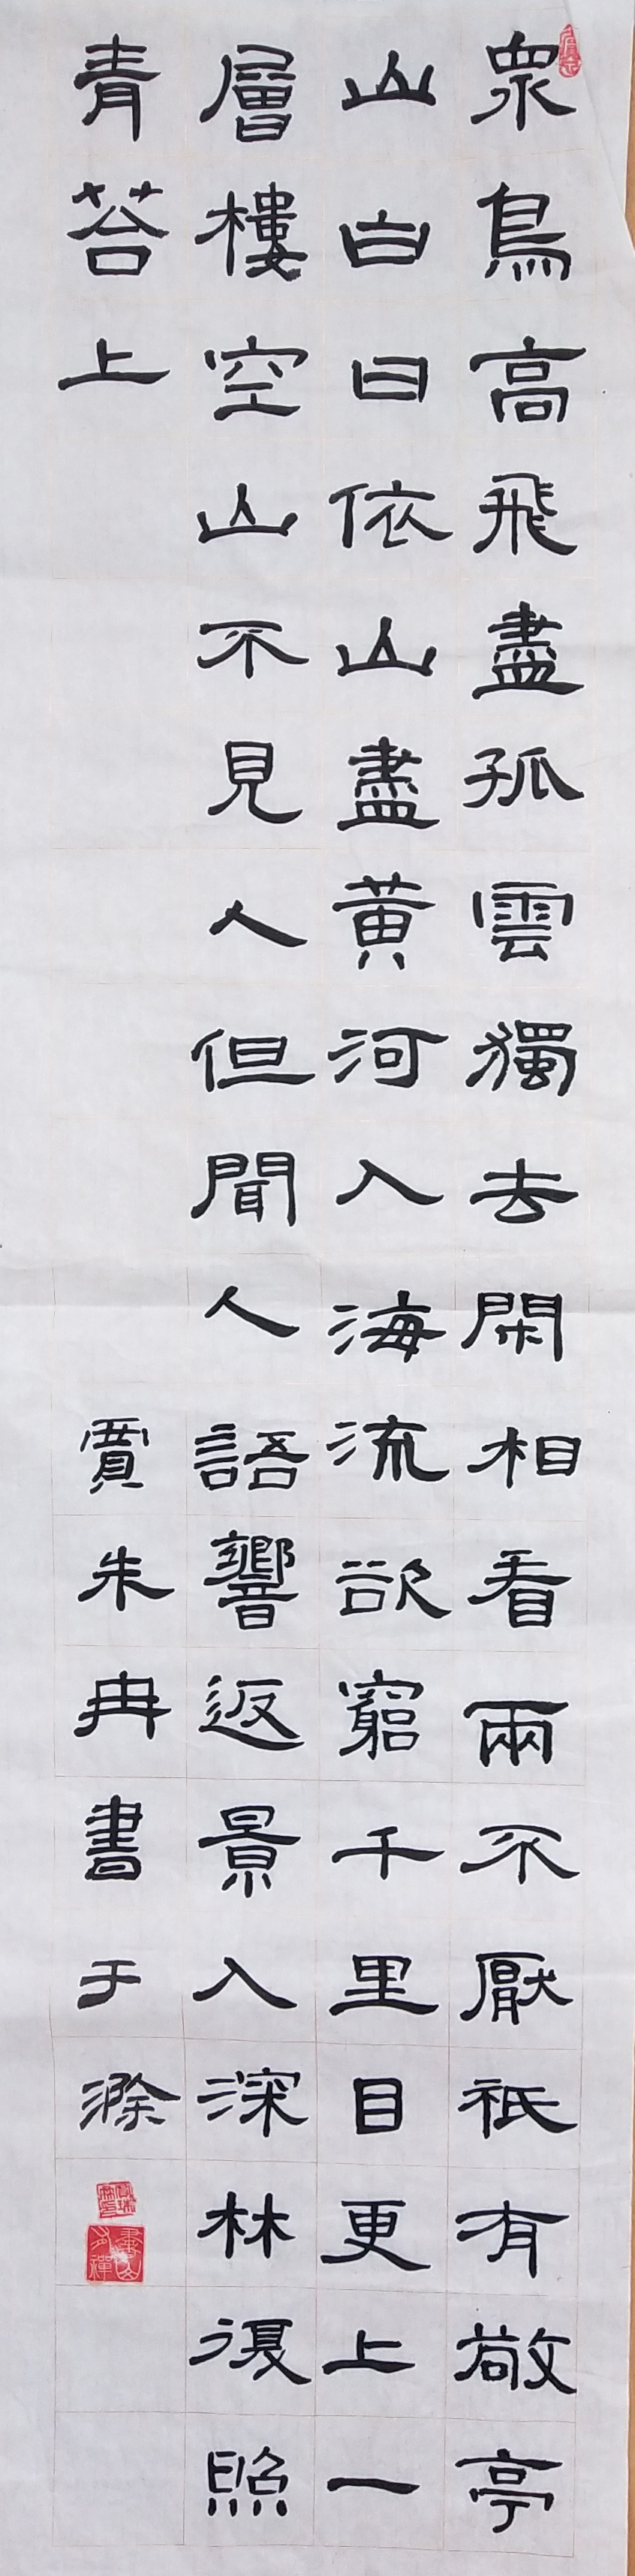 眾鳥高飛盡孤雲獨去閑相看兩不厭祇有敬亭
山白日依山盡黃河入海流欲窮千里目更上一
層樓空山不見人但聞人語響返景入深林復照
青苔上
賈朱冉書于滁